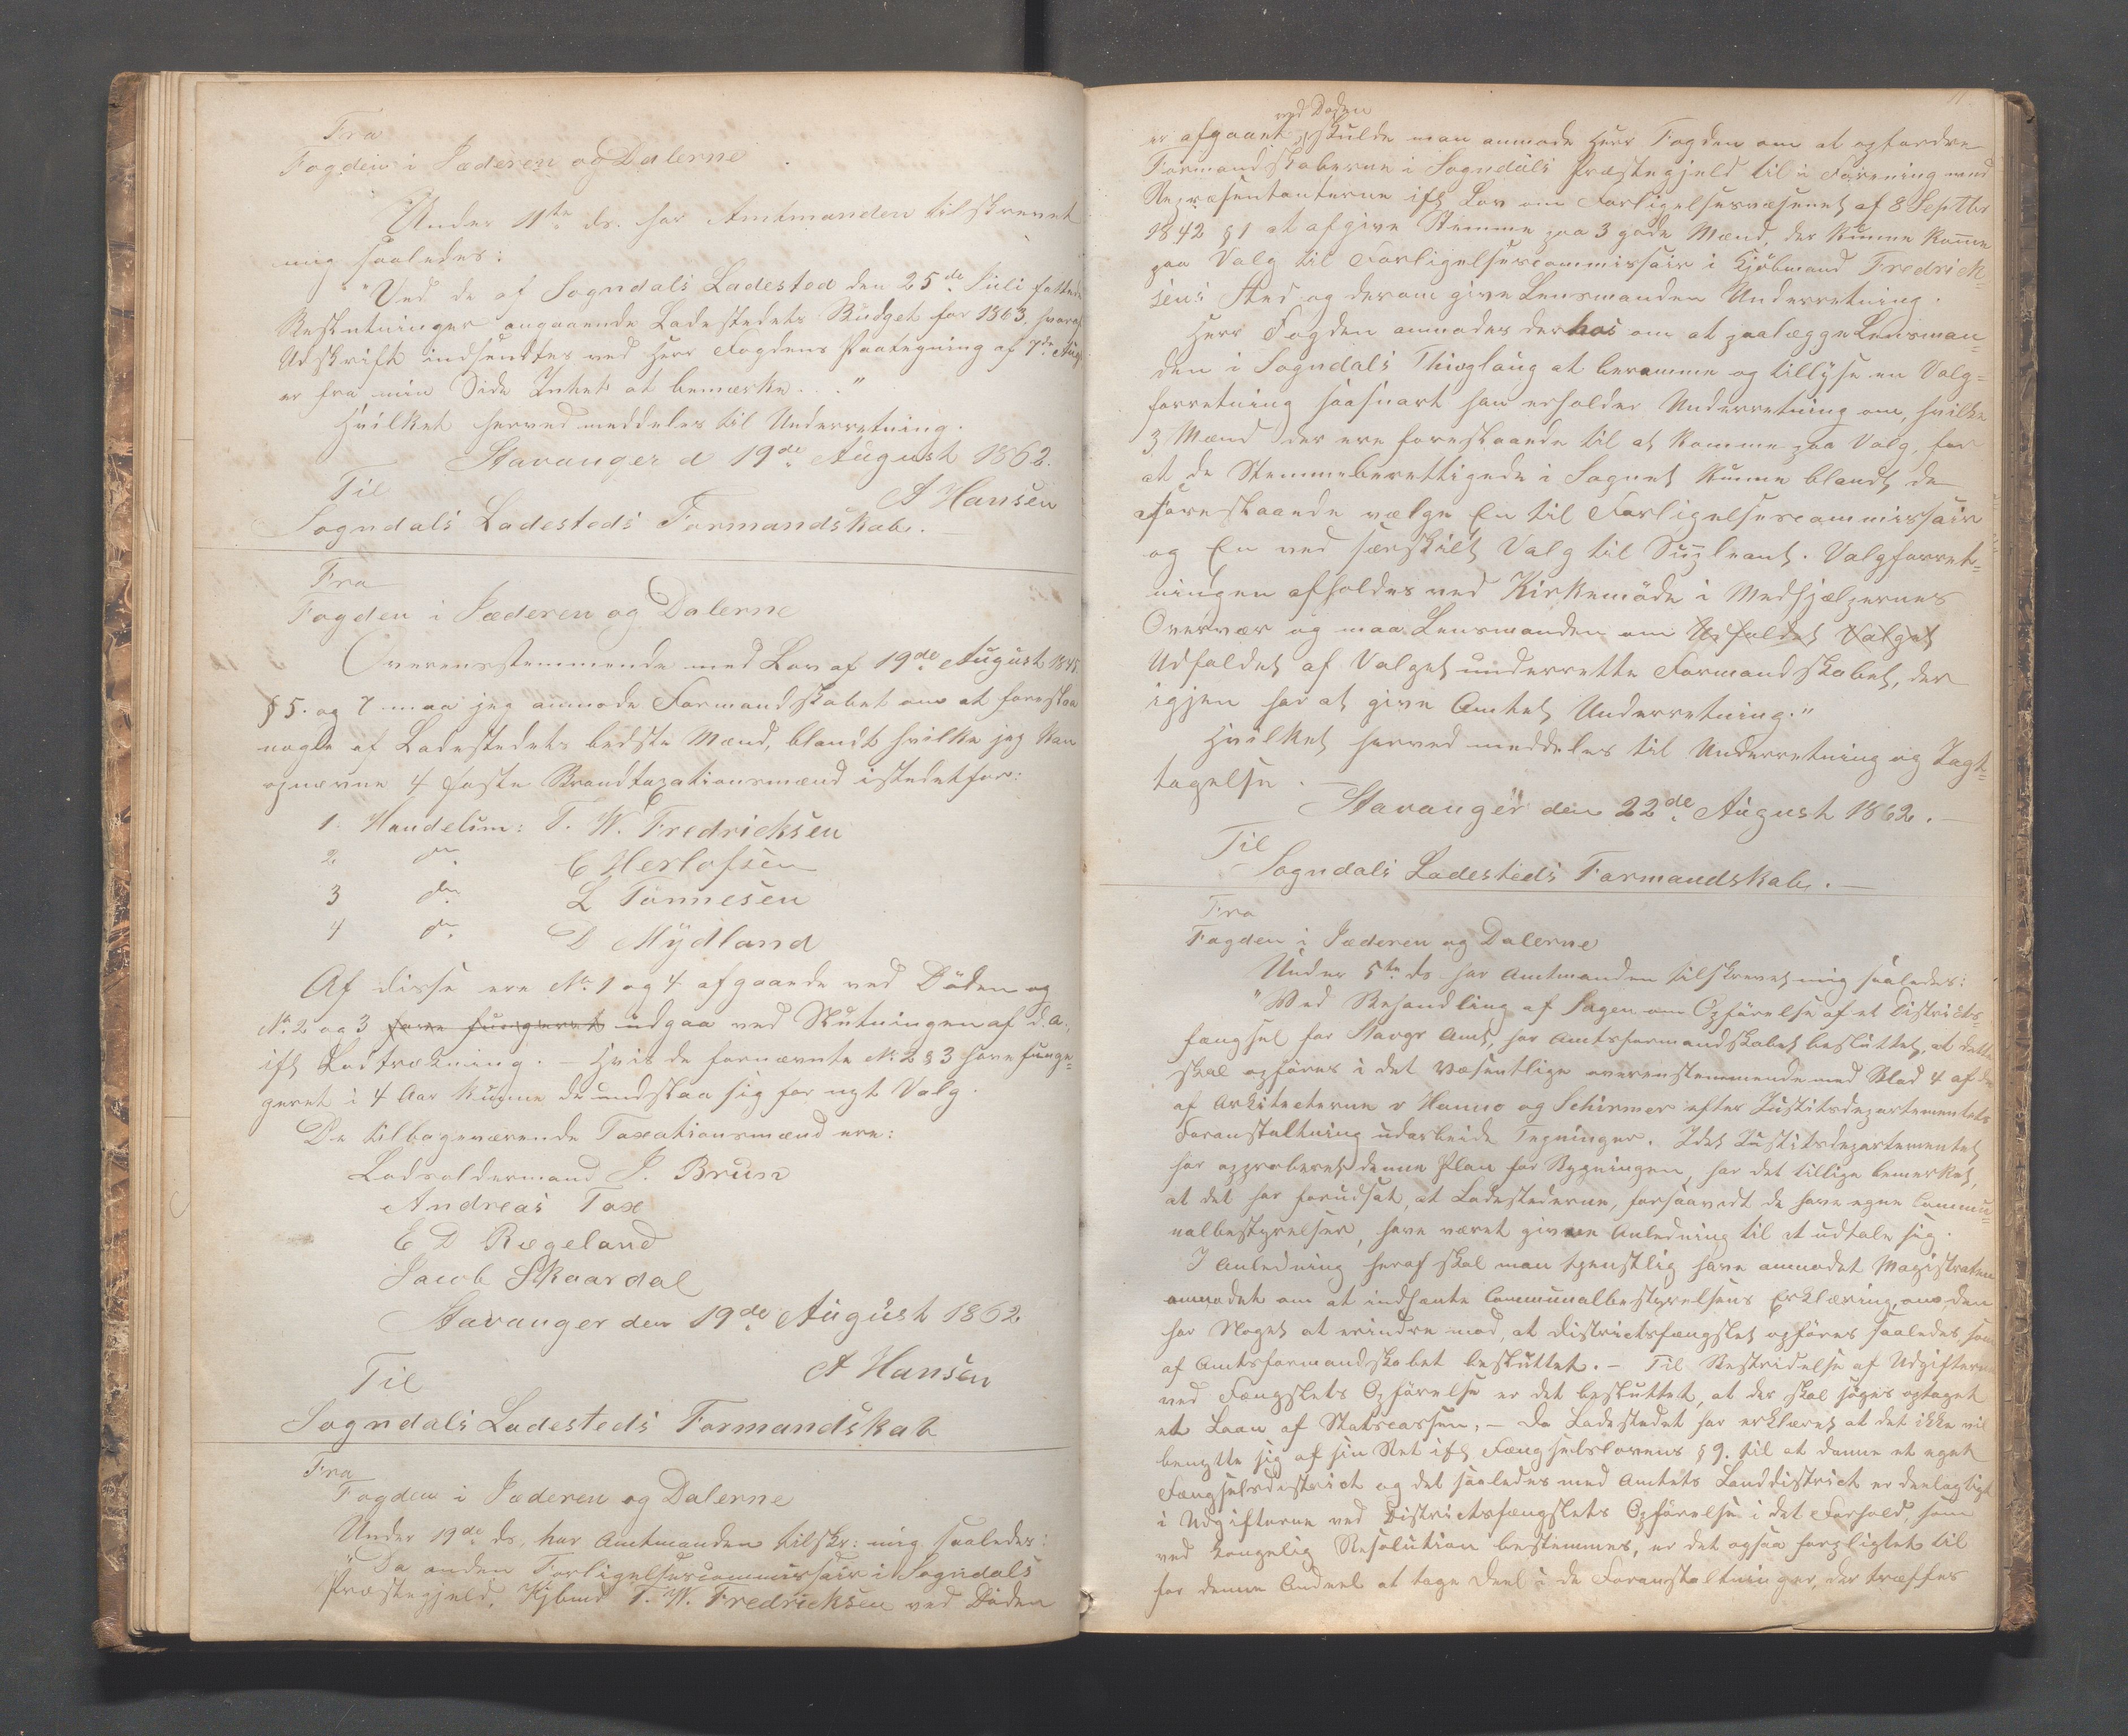 Fra
Fogden i Jæderen og Dalerne
Under 11te ds. har Amtmanden tilskrevet
mig saaledes:
"Ved de af Sogndals Ladestod den 25de Juli fattede
Beslutninger angaaende Ladestedets Budget for 1863, hvoraf
Udskrift indsendtes ved Herr Fogdens Paategning af 7de Aug
er fra min Side Intet at bemærke . . ."
Hvilket herved meddeles til Underretning.
Stavanger d 19de August 1862.
A Hansen
Til
Sogndals Ladesteds Formandskab.
Fra
Fogden i Jæderen og Dalerne
Overensstemmende med Lov af 19de August 1845
§ 5. og 7 maa jeg anmode Formandskabet om at foreslaa
nogle af Ladestedets bedste Mænd, blandt hvilke jeg kan
opnævne 4 faste Brandtaxationsmænd istedetfor:
1. Handelsm: T. W. Fredricksen
2 do. C Herlofsen
3 do. L Tönnesen
4 do. D Mydland
Af disse ere No 1 og 4 afgaaede ved Döden og
No 2 og 3 have fungeret udgaa ved Slutningen af d. A.
ifl Lodtrækning. - Hvis de fornævnte No 2 & 3 have funge=
geret i 4 Aar kunne de undslaa sig for nyt Valg.
De tilbageværende Taxationsmænd ere:
Lodsoldermand J. Brun
Andreas Tax
E D Rægeland
Jacob Skaardal
Stavanger den 19de August 1862
A Hansen
Til
Sogndals Ladesteds Formandskab
Fra
Fogden i Jæderen og Dalerne
Under 19de ds. har Amtmanden tilskr: mig saaledes:
"Da anden Forligelsescommissair i Sogndals
Præstegjeld, Kjbmd T. W. Fredricksen ved Döden
11
ved Döden
er afgaaet, skulde man anmode Herr Fogden om at opfordre
Formandskaberne i Sogndals Præstegjeld til i Forening med
Repræsentanterne ifl Lov om Forligelsesvæsenet af 8 Septbr
1842 § 1 at afgive Stemme paa 3 gode Mænd, der kunne komme
paa Valg til Forligelsescommissair i Kjöbmand Fredrick=
sens Sted og derom give Lensmanden Underretning.
Herr Fogden anmodes derhos om at paalægge Lensman=
den i Sogndals Thinglaug at beramme og tillyse en Valg=
forretning saasnart han erholder Underretning om, hvilke
3 Mænd der ere foreslaaede til at komme paa Valg, for
at de Stemmeberettigede i Sognet kunne blandt de
Foreslaaede vælge En til Forligelsescommissair
og En ved særskilt Valg til Suppleant. Valgforret=
ningen afholdes ved Kirkemöde i Medhjælpernes
Overvær og maa Lensmanden om Udfaldet Valget
Udfaldet af Valget underrette Formandskabet, der
igjen har at give Amtet Underretning."
Hvilket herved meddeles til Underretning og Iagt=
tagelse.
Stavanger den 22de August 1862.
Til
Sogndals Ladesteds Formandskab.
Fra
Fogden i Jæderen og Dalerne
Under 5te ds har Amtmanden tilskrevet mig saaledes:
"Ved Behandling af Sagen om Opförelse af et Districts=
fængsel for Stavgr Amt, har Amtsformandskabet besluttet, at dette
skal opföres i det Væsentlige overenstemmende med Blad 4 af de
af Arkitecterne v Hanno og Schirmer efter Justitsdepartementets
Foranstaltning udarbeide Tegninger. Idet Justitsdepartementet
har approberet denne Plan for Bygningen, har det tillige bemerket,
at det har forudsat, at Ladestederne, forsaavidt de have egne Commu=
nalbestyrelser, have været givne Anledning til at udtale sig.
I Anledning heraf skal man tjenstlig have anmodet Magistraten
anmodet om at indhente Communalbestyrelsens Erklæring, om den
har Noget at erindre mod, at Districtsfængslet opföres saaledes, som
af Amtsformandskabet besluttet. - Til Bestridelse af Udgifterne
ved Fængslets Opförelse er det besluttet, at der skal söges optaget
et Laan af Statscassen. - Da Ladestedet har erklæret at det ikke vil
benytte sig af sin Ret ifl Fængselslovens § 9. til at danne et eget
Fængselsdistrict og det saaledes med Amtets Landdistrict er deelagtigt
i Udgifterne ved Districtsfængslets Opförelse i det Forhold, som
ved Kongelig Resolution bestemmes, er det ogsaa forpligtet til
for denne Andeel at tage Deel i de Foranstaltninger, der træffes